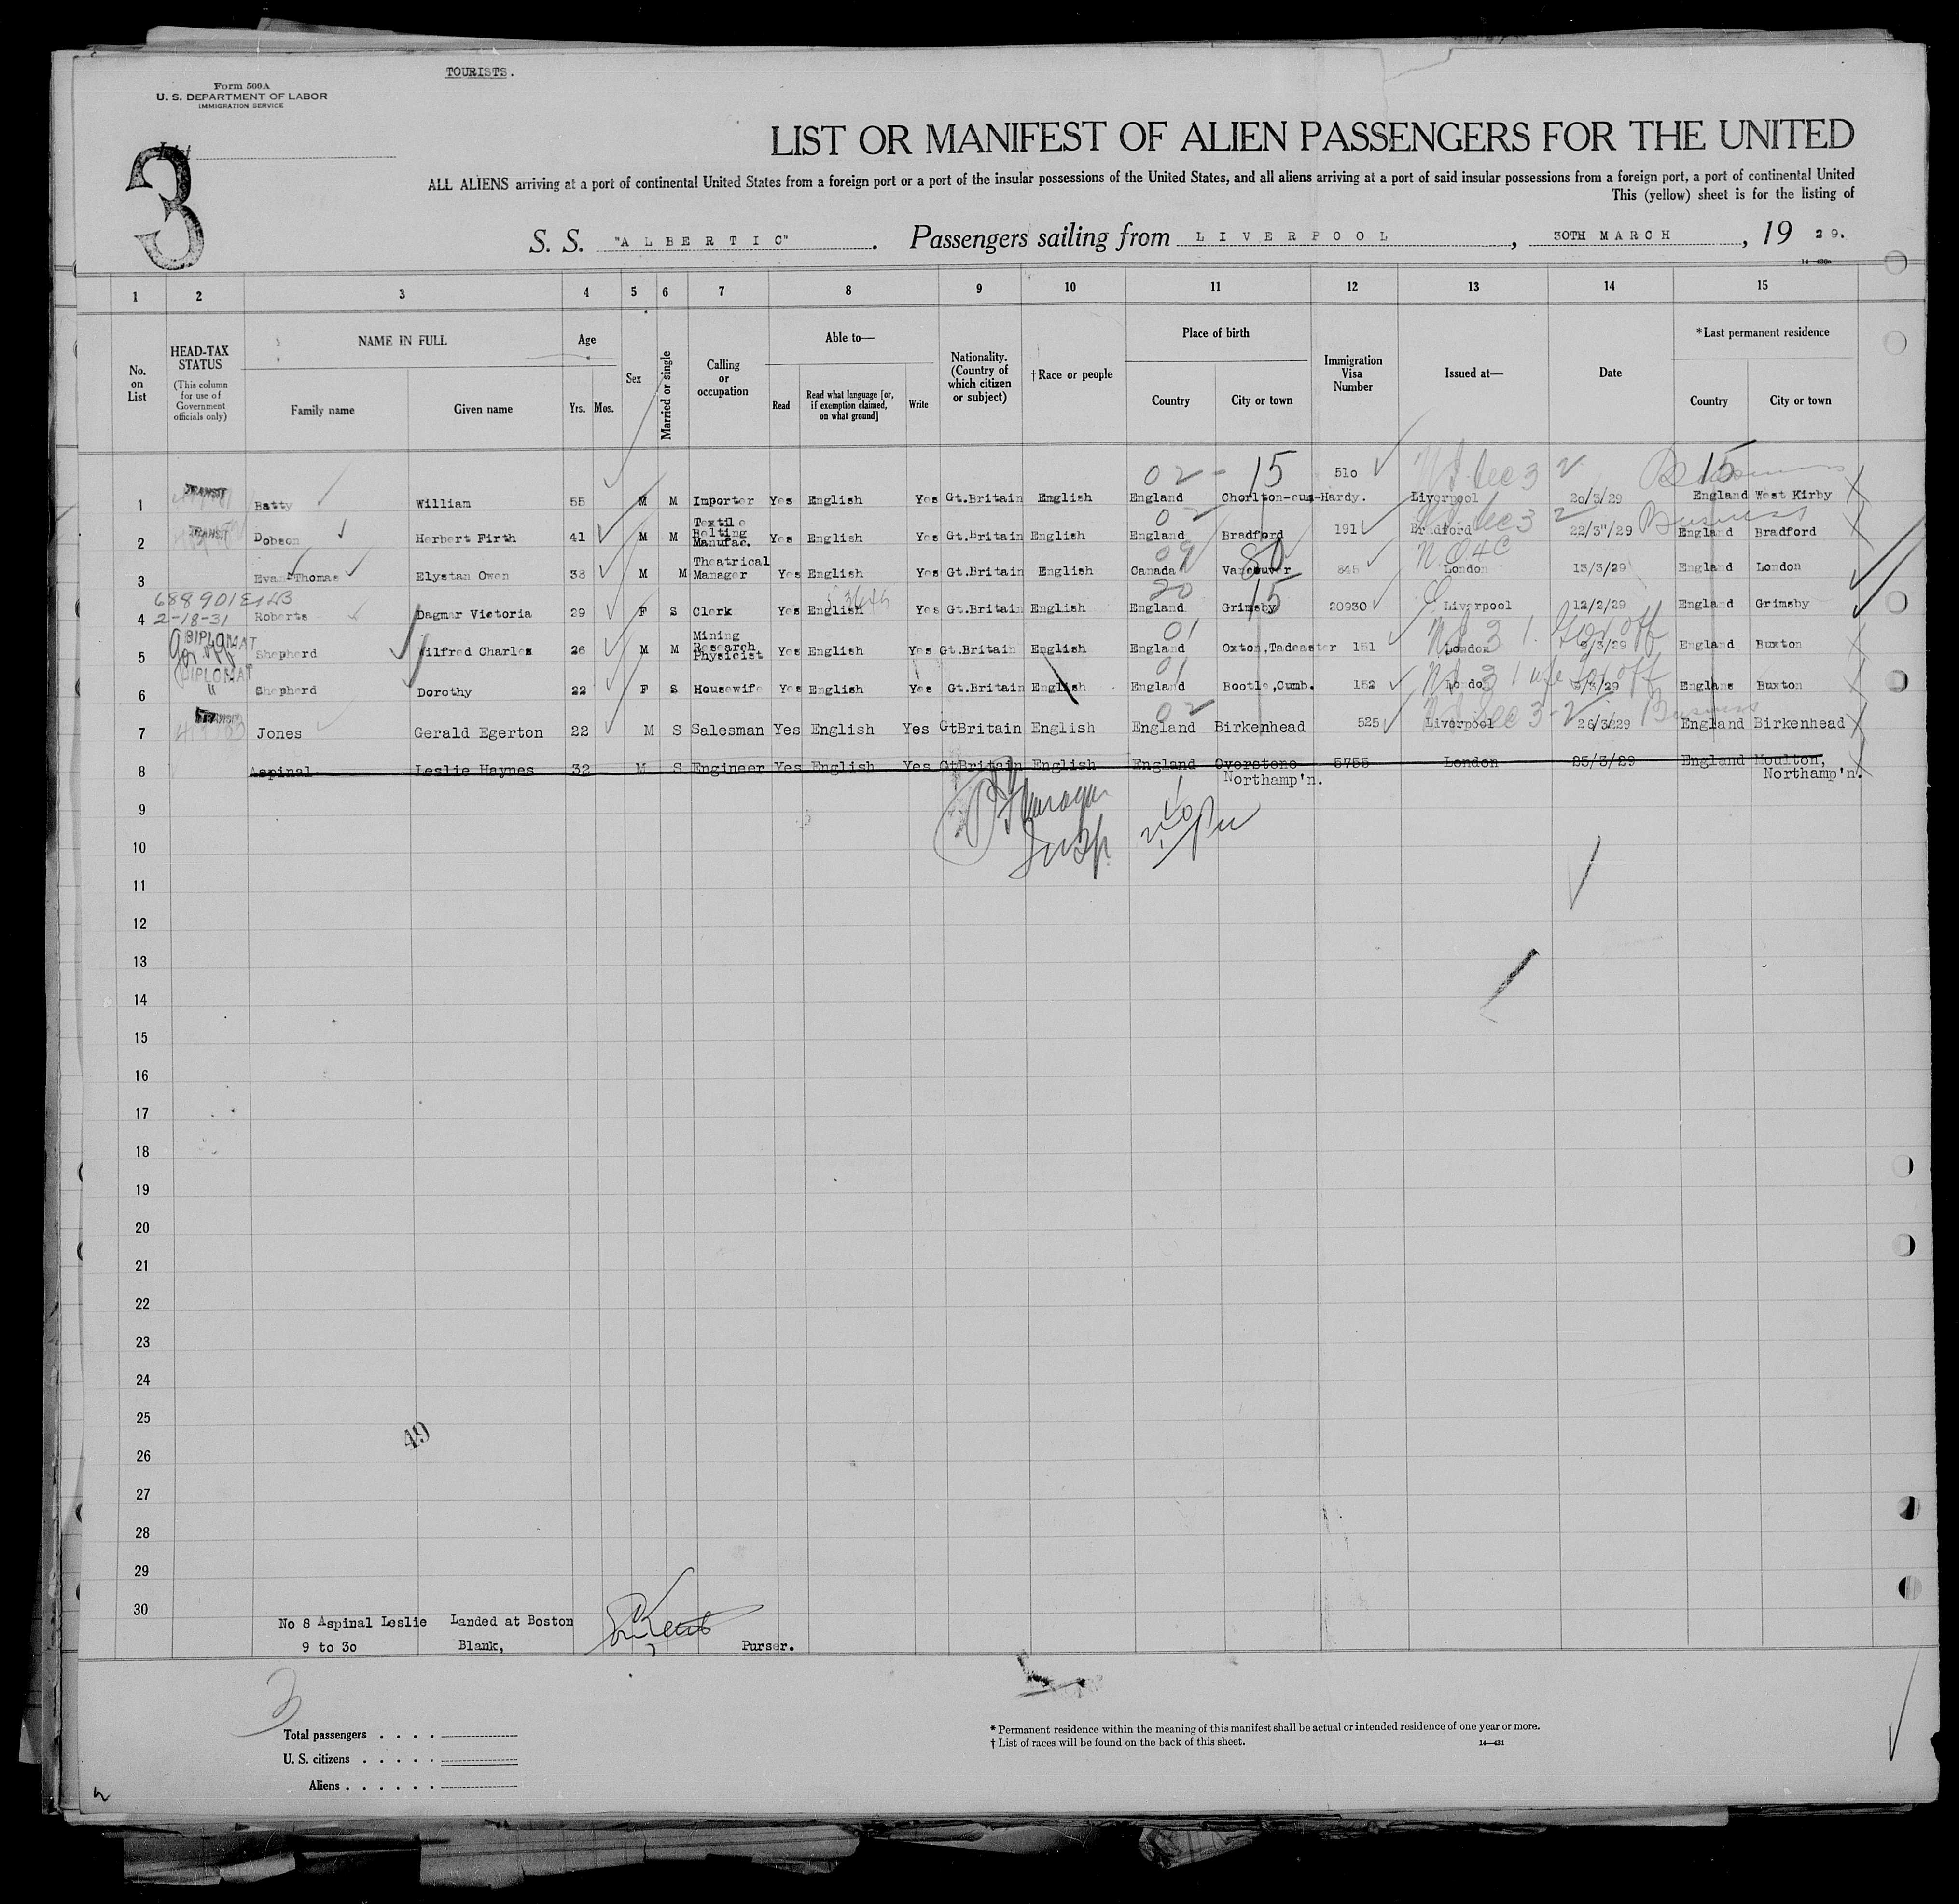 TOURISTS.
Form 500A
U. S. DEPARTMENT OF LABOR
IMMIGRATION SERVICE
List
3
LIST OR MANIFEST OF ALIEN PASSENGERS FOR THE UNITED
ALL ALIENS arriving at a port of continental United States from a foreign port or a port of the insular possessions of the United States, and all aliens arriving at a port of said insular possessions from a foreign port, a port of continental United
This (yellow) sheet is for the listing of
S. S. "ALBERTIC". Passengers sailing from LIVERPOOL, 30TH MARCH, 19 29.
14—430a
1 2 3 4 5 6 7 8 9 10 11 12 13 14 15
No. on List
HEAD-TAX STATUS (This column for use of Government officials only)
NAME IN FULL
Family name Given name
Age
Yrs. Mos.
Sex
Married or single
Calling or occupation
Able to—
Read Read what language [or, if exemption claimed, on what ground] Write
Nationality. (Country of which citizen or subject)
†Race or people
Place of birth
Country City or town
Immigration Visa Number
Issued at—
Date
*Last permanent residence
Country City or town
02 - 15 15
1 TRANSIT Batty William 55 M M Importer Yes English Yes Gt.Britain English England Chorlton-cum-Hardy. 510 Liverpool 20/3/29 England West Kirby
02 Business
2 TRANSIT Dobson Herbert Firth 41 M M Textile Belting Manufac. Yes English Yes Gt.Britain English England Bradford 191 Bradford 22/3"/29 England Bradford
09 80
3 Evan-Thomas Elystan Owen 38 M M Theatrical Manager Yes English Yes Gt.Britain English Canada Vancouver 845 London 13/3/29 England London
688901
2-18-31
20 15
4 Roberts Dagmar Victoria 29 F S Clerk Yes English Yes Gt.Britain English England Grimsby 20930 Liverpool 12/2/29 England Grimsby
DIPLOMAT
01
5 Shepherd Wilfred Charles 26 M M Mining Research Physicist Yes English Yes Gt.Britain English England Oxton,Tadcaster 151 London 9/3/29 England Buxton
DIPLOMAT
01
6 " Shepherd Dorothy 22 F S Housewife Yes English Yes Gt.Britain English England Bootle,Cumb. 152 London 9/3/29 Englans Buxton
02 Business
7 TRANSIT Jones Gerald Egerton 22 M S Salesman Yes English Yes GtBritain English England Birkenhead 525 Liverpool 26/3/29 England Birkenhead
8 Aspinal Leslie Haynes 32 M S Engineer Yes English Yes GtBritain English England Overstone Northamp'n. 5755 London 25/3/29 England Moulton, Northamp'n.
9
10
11
12
13
14
15
16
17
18
19
20
21
22
23
24
25
49
26
27
28
29
30
No 8 Aspinal Leslie Landed at Boston
9 to 30 Blank, Purser.
3
Total passengers . . . .
U. S. citizens . . . . .
Aliens . . . . . .
* Permanent residence within the meaning of this manifest shall be actual or intended residence of one year or more.
† List of races will be found on the back of this sheet.
14—431